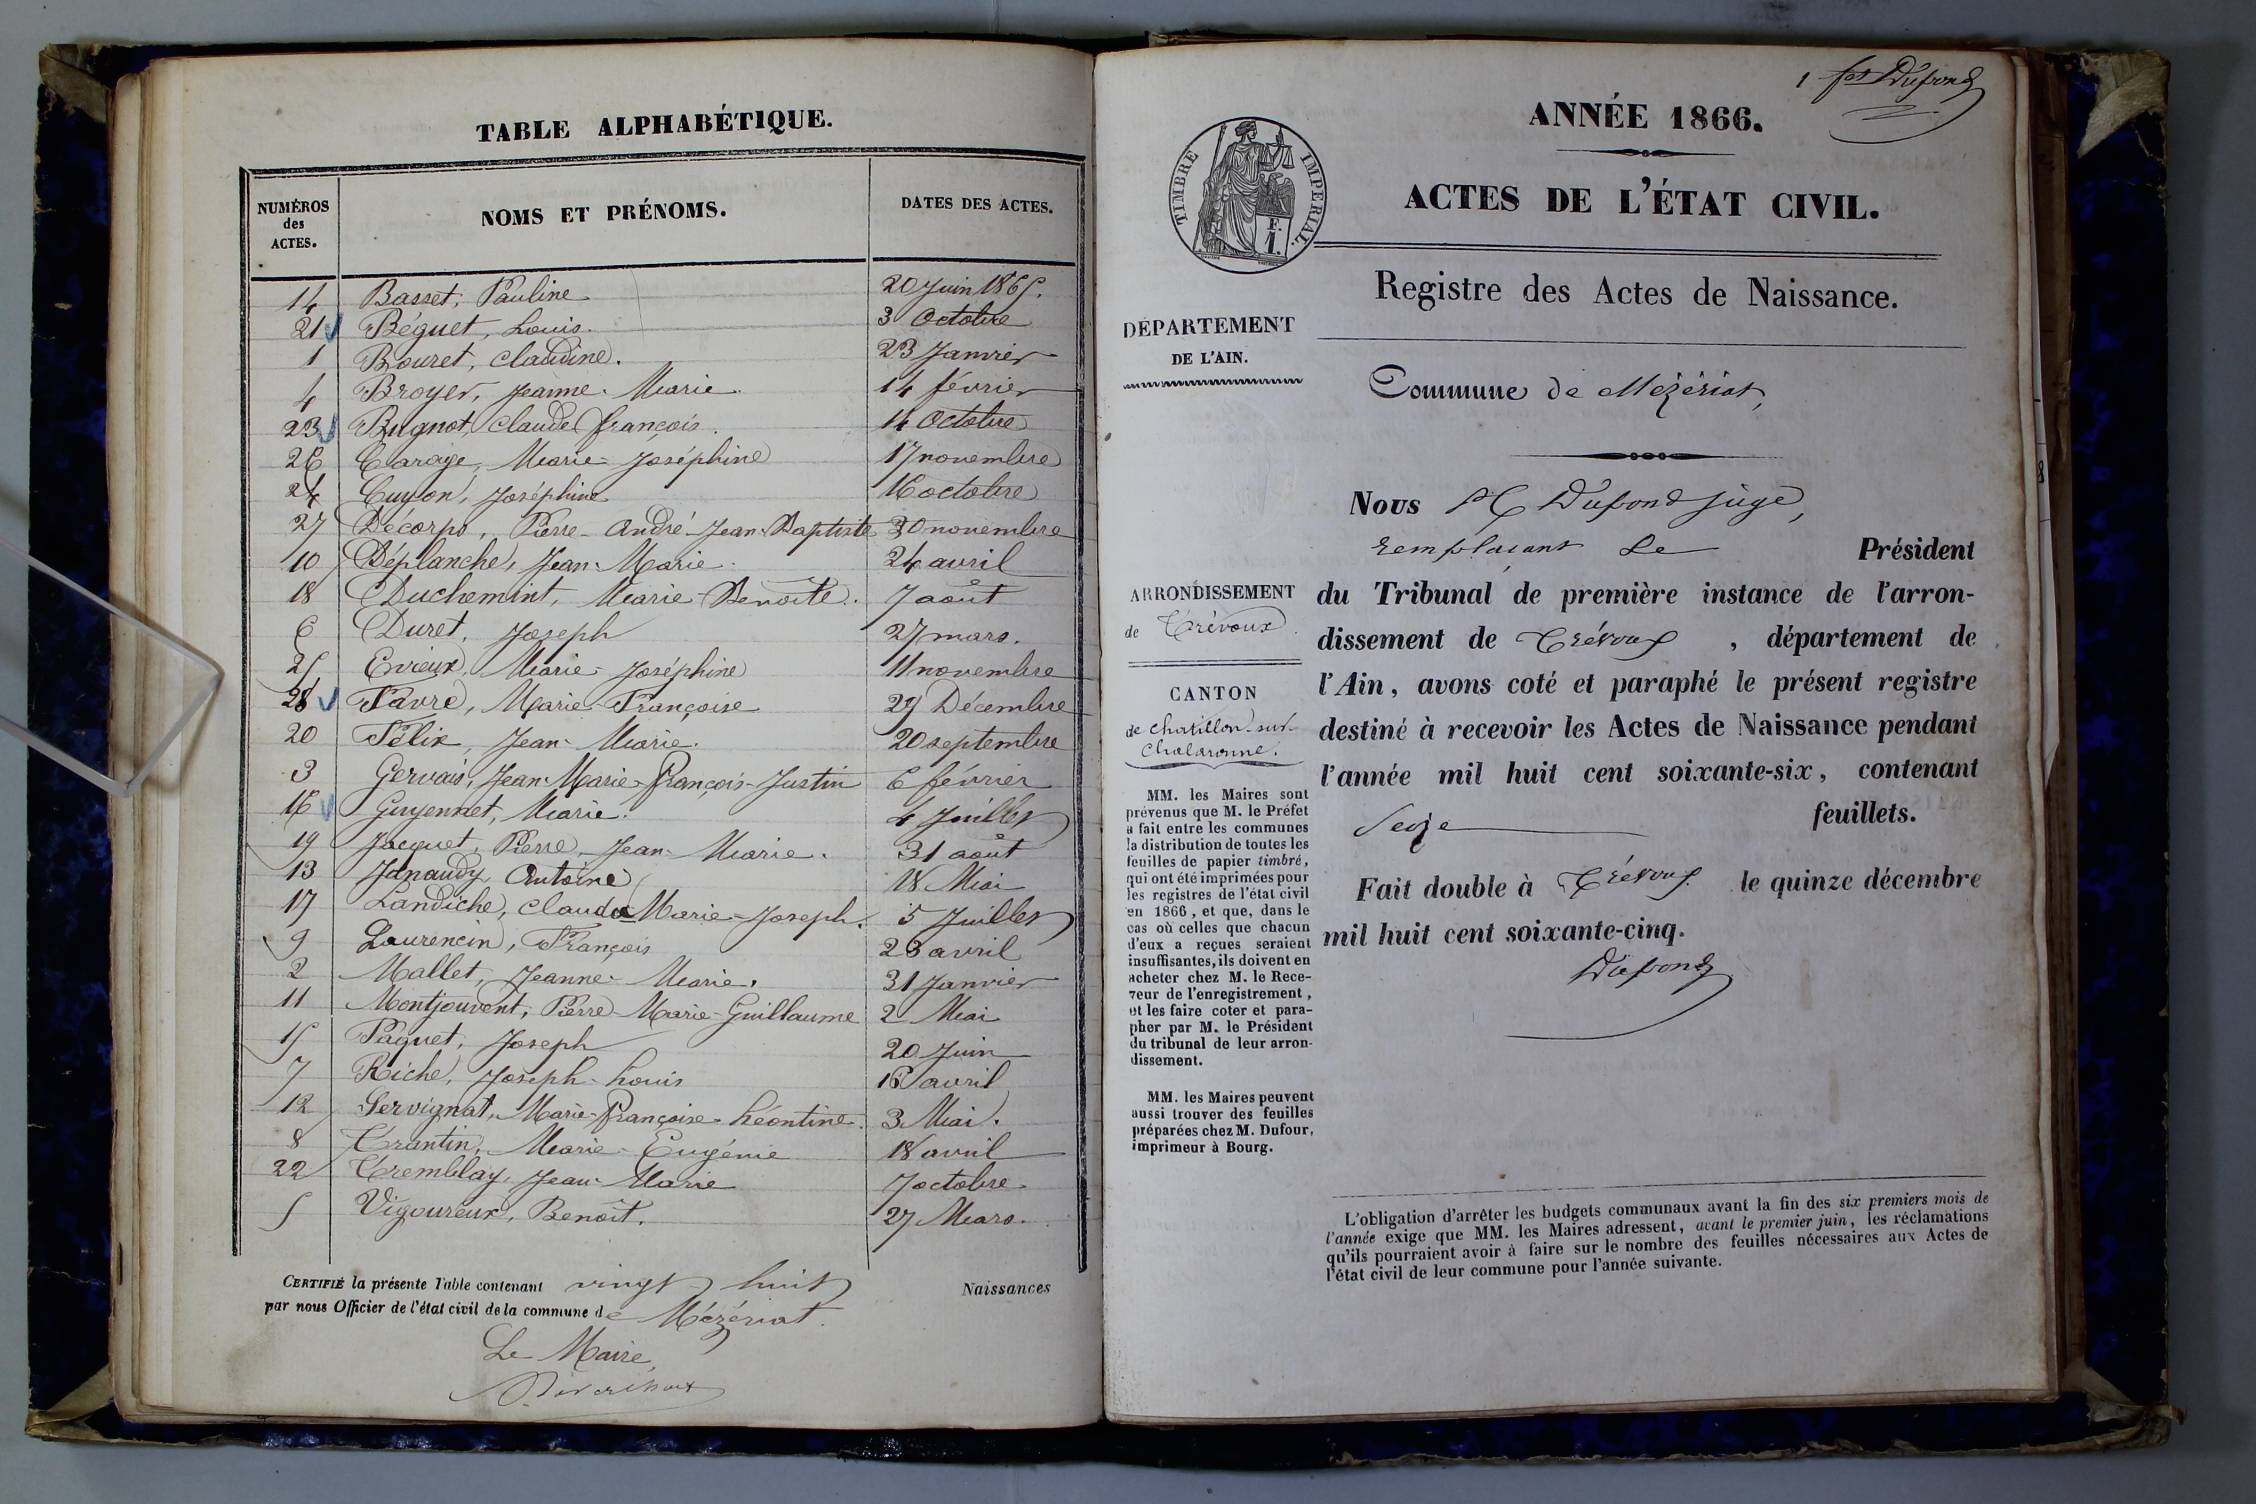 TABLE ALPHABÉTIQUE.
NUMÉROS des ACTES. NOMS ET PRÉNOMS. DATES DES ACTES.
14 Basset, Pauline 20 Juin 1865.
21 Béguet, Louis. 3 Octobre
1 Bouret, Claudine. 23 Janvier
4 Broyer, Jeanne-Marie. 14 février
23 Bugnot, Claude François. 14 Octobre
26 Carage, Marie-Joséphine 17 novembre
24 Guyon, Joséphine 16 octobre
27 Décorps, Pierre-André-Jean-Baptiste 30 novembre
10 Déplanche, Jean-Marie. 24 avril
18 Duchemint, Marie-Benoîte. 7 août
6 Duret, Joseph 27 mars.
25 Evieux, Marie-Joséphine 11 novembre
28 Favre, Marie-Françoise 29 Décembre
20 Félix, Jean-Marie. 20 septembre
3 Gervais, Jean-Marie-François-Justin 6 février
16 Guyennet, Marie. 4 Juillet
19 Jacquet, Pierre, Jean-Marie. 31 août
13 Janaudy, Antoine 18 Mai
17 Landiche, Claude Marie-Joseph. 5 Juillet
9 Laurencin, François 23 avril
2 Mallet, Jeanne-Marie. 31 Janvier
11 Montjouvent, Pierre-Marie-Guillaume 2 Mai
15 Paquet, Joseph 20 Juin
7 Riche, Joseph-Louis 16 avril
12 Servignat, Marie-Françoise-Léontine. 3 Mai.
8 Trantin, Marie-Eugénie 18 avril
22 Tremblay, Jean-Marie 7 octobre
5 Vigoureux, Benoît. 27 Mars.
CERTIFIÉ la présente Table contenant vingt huit Naissances
par nous Officier de l'état civil de la commune de Mézériat.
Le Maire,
1 fet Dupond
ANNÉE 1866.
TIMBRE IMPÉRIAL.
F.
1.
ACTES DE L'ÉTAT CIVIL.
Registre des Actes de Naissance.
DÉPARTEMENT
DE L'AIN.
Commune de Mézériat,
Nous Dupond juge,
remplaçant le Président
du Tribunal de première instance de l'arron-
dissement de Trévoux, département de
l'Ain, avons coté et paraphé le présent registre
destiné à recevoir les Actes de Naissance pendant
l'année mil huit cent soixante-six, contenant
Seize feuillets.
Fait double à Trévoux le quinze décembre
mil huit cent soixante-cinq.
Dupond
ARRONDISSEMENT
de Trévoux
CANTON
de Chatillon-sur-
Chalaronne.
MM. les Maires sont
prévenus que M. le Préfet
a fait entre les communes
la distribution de toutes les
feuilles de papier timbré,
qui ont été imprimées pour
les registres de l'état civil
en 1866, et que, dans le
cas où celles que chacun
d'eux a reçues seraient
insuffisantes, ils doivent en
acheter chez M. le Rece-
veur de l'enregistrement,
et les faire coter et para-
pher par M. le Président
du tribunal de leur arron-
dissement.
MM. les Maires peuvent
aussi trouver des feuilles
préparées chez M. Dufour,
imprimeur à Bourg.
L'obligation d'arrêter les budgets communaux avant la fin des six premiers mois de
l'année exige que MM. les Maires adressent, avant le premier juin, les réclamations
qu'ils pourraient avoir à faire sur le nombre des feuilles nécessaires aux Actes de
l'état civil de leur commune pour l'année suivante.